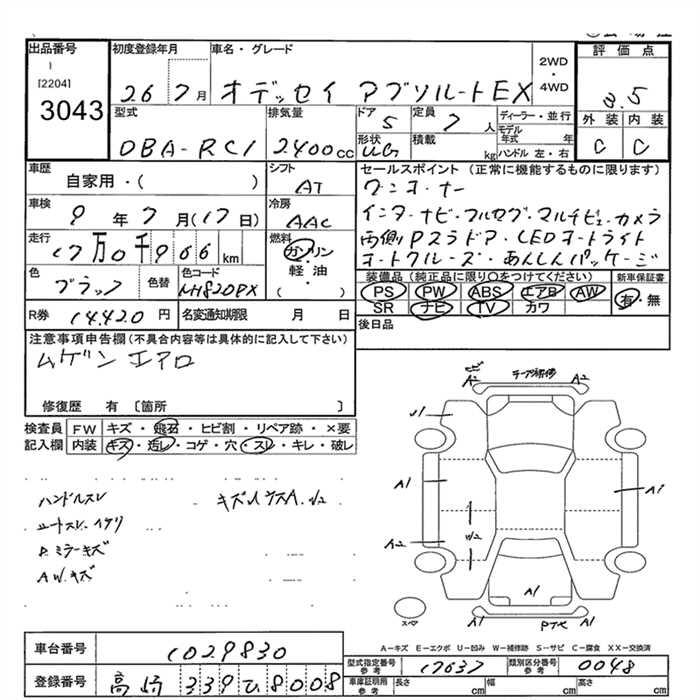 出品番号
[2204]
3043
初度登録年月
26 7月
車名・グレード
オデッセイ アブソルートEX
2WD
・
4WD
評価点
3.5
外装 内装
C C
型式
DBA-RC1
排気量
2400cc
ドア
5
形状
UG
定員
7人
積載
kg
ディーラー・並行
モデル
年式 年
ハンドル 左・右
車歴
自家用・( )
シフト
AT
車検
9年7月(17日)
冷房
AAC
走行
17万0千966km
燃料
ガソリン
・
軽・油
( )
色
ブラック
色替
色コード
NH820PX
R券 14,420円
名変通知期限 月 日
セールスポイント(正常に機能するものに限ります)
ワンオーナー
インターナビ・フルセグ・マルチビューカメラ
両側Pスラドア・LEDオートライト
オートクルーズ・あんしんパッケージ
装備品(純正品に限り○をつけてください)
PS PW ABS エアB AW
SR ナビ TV カワ
新車保証書
有・無
後日品
注意事項申告欄(不具合内容等は具体的に記入して下さい)
ムゲンエアロ
修復歴 有〔箇所 〕
検査員
記入欄
FW キズ・飛石・ヒビ割・リペア跡・×要
内装 キズ・汚レ・コゲ・穴・スレ・キレ・破レ
ハンドルスレ
シートスレ・ヘタリ
R.ミラーキズ
AW.キズ
A2 A2
U1
A1
A1
A2
W2
A1
A1
スペア
A-キズ E-エクボ U-凹み W-補修跡 S-サビ C-腐食 XX-交換済
車台番号 1029830
登録番号 高崎 339 ひ 8008
型式指定番号
参考
17637
類別区分番号
参考
0048
車庫証明用
参考
長さ cm
幅 cm
高さ cm